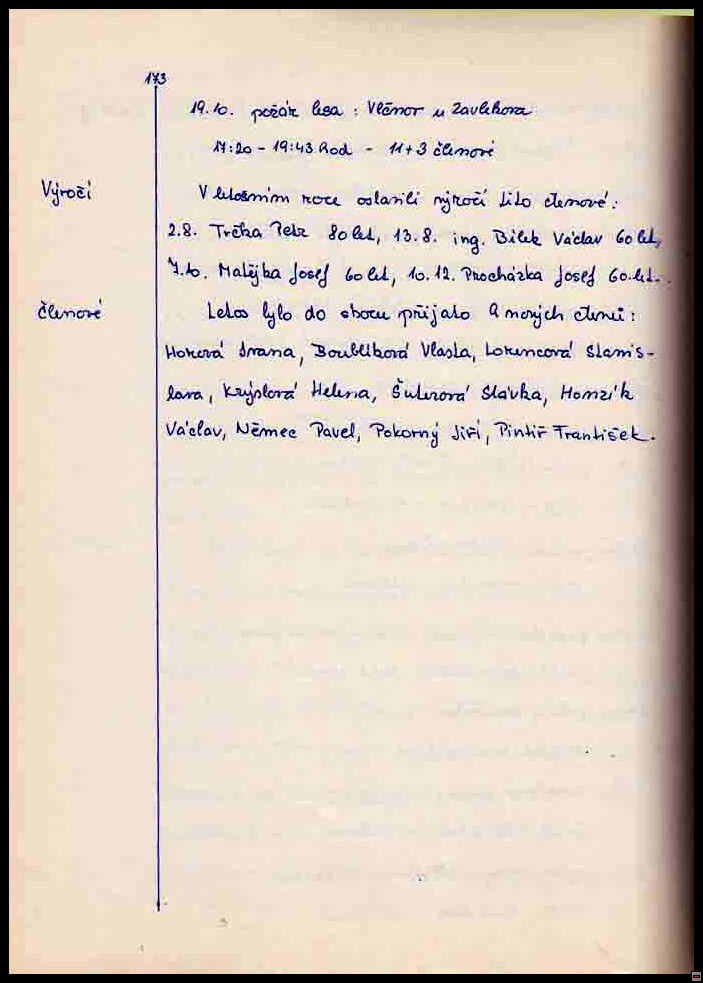 173
19.10. požár lesa : Vlčnov u Zavlekova
17:20 - 19:43 hod - 11+3 členové
Výročí
V letošním roce oslavili výročí tito členové :
2.8. Trčka Petr 80 let, 13.8. ing. Bílek Václav 60 let,
7.10. Matějka Josef 60 let, 10.12. Procházka Josef 60 let.
členové
Letos bylo do sboru přijato 9 nových členů :
Honová Ivana, Boublíková Vlasta, Lorencová Stanis-
lava, Krýslová Helena, Šulerová Slávka, Homzík
Václav, Němec Pavel, Pokorný Jiří, Pintíř František.